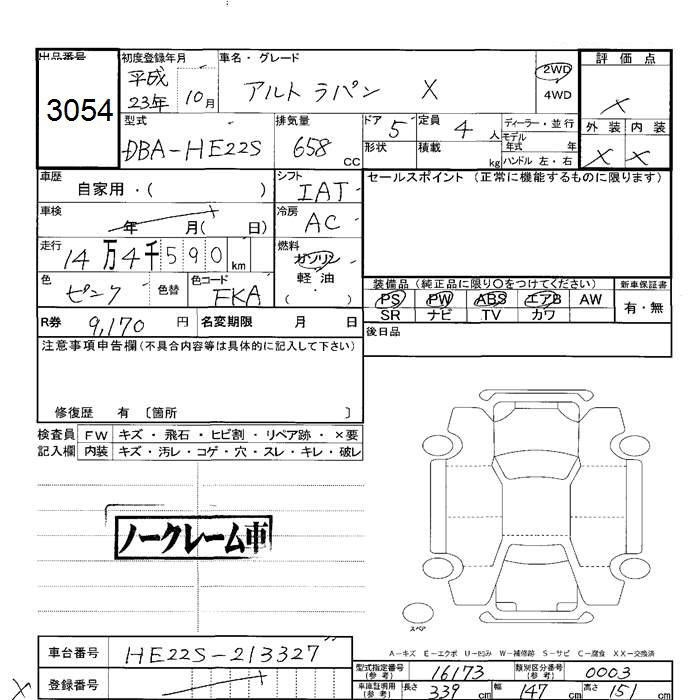 出品番号
3054
初度登録年月
平成
23年 10月
車名・グレード
アルト ラパン X
2WD
4WD
評価点
X
外装 内装
X X
型式
DBA-HE22S
排気量
658 cc
ドア 5
形状
定員 4 人
積載 kg
ディーラー・並行
モデル年式 年
ハンドル 左・右
車歴
自家用・( )
シフト
IAT
セールスポイント (正常に機能するものに限ります)
車検
年 月( 日)
冷房
AC
走行
14万4千590 km
燃料
ガソリン
軽油
( ・ )
色
ピンク
色替
色コード
FKA
装備品 (純正品に限り○をつけてください)
新車保証書
PS PW ABS エアB AW
有・無
SR ナビ TV カワ
R券 9,170 円
名変期限 月 日
後日品
注意事項申告欄(不具合内容等は具体的に記入して下さい)
修復歴 有 〔箇所 〕
検査員 FW キズ・飛石・ヒビ割・リペア跡・×要
記入欄 内装 キズ・汚レ・コゲ・穴・スレ・キレ・破レ
ノークレーム車
スペア
A-キズ E-エクボ U-凹み W-補修跡 S-サビ C-腐食 XX-交換済
車台番号 HE22S-213327
登録番号
X
型式指定番号
(参考)
16173
類別区分番号
(参考)
0003
車庫証明用
(参考)
長さ 339 cm 幅 147 cm 高さ 151 cm